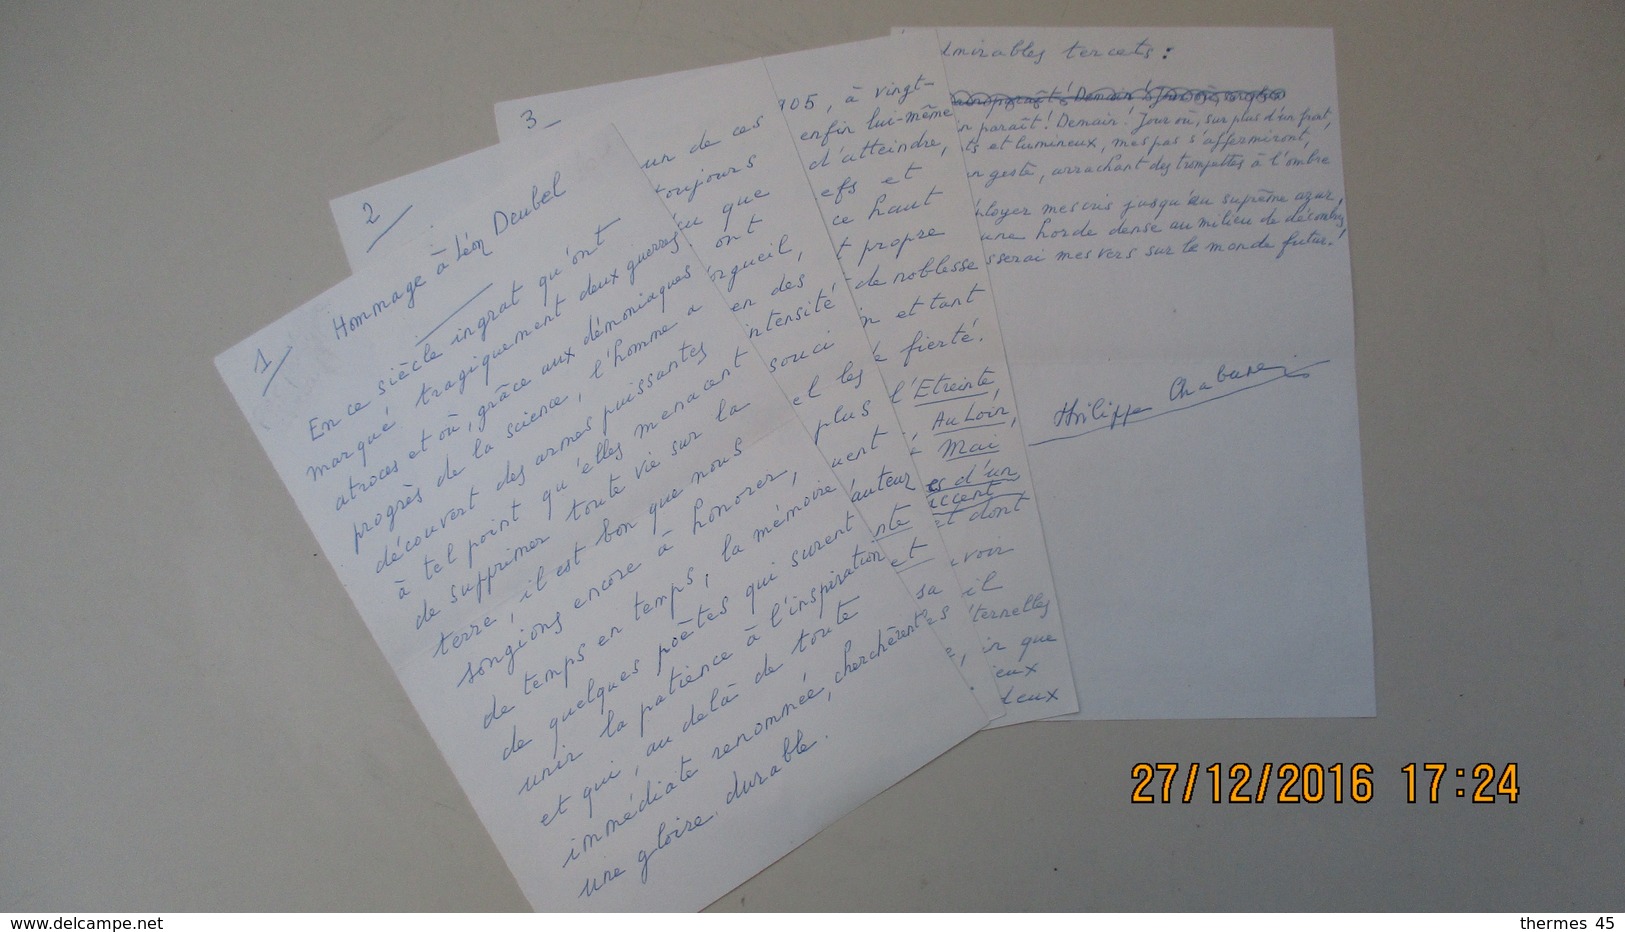 1
Hommage à Léon Deubel
En ce siècle ingrat qu'ont
marqué tragiquement deux guerres
atroces et où, grâce aux démoniaques
progrès de la science, l'homme a
découvert des armes puissantes
à tel point qu'elles menacent
de supprimer toute vie sur la
terre, il est bon que nous
songions encore à honorer,
de temps en temps, la mémoire
de quelques poètes qui surent
unir la patience à l'inspiration
et qui, au delà de toute
immédiate renommée, cherchèrent
une gloire durable.
2
un de ces
toujours
que
ont
orgueil,
en des
intensité
souci
et les
3
905, à vingt-
enfin lui-même
d'atteindre,
efs et
ce haut
t propre
de noblesse
n et tant
fierté.
plus l'Etreinte,
Au Loin,
uent Mai
auteur es d'un
accent
et dont
voir
sa il
éternelles
ir que
ieux
deux
dmirables tercets:
n paraît! Demain! Jour où, sur plus d'un front,
ts et lumineux, mes pas s'affermiront,
n geste, arrachant des trompettes à l'ombre
ployer mes cris jusqu'au suprême azur,
une horde dense au milieu de décombres
sserai mes vers sur le monde futur!
Philippe Chabaneix
27/12/2016 17:24
www.delcampe.net
thermes 45